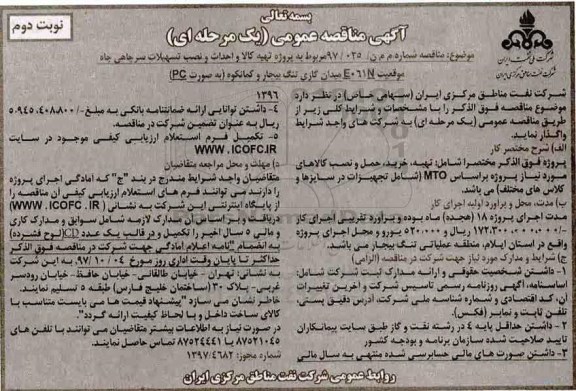 بسمه تعالی
آگهی مناقصه عمومی (یک مرحله ای)
نوبت دوم
شرکت ملی نفت ایران
شرکت نفت مناطق مرکزی ایران
موضوع: مناقصه شماره م م ن / ۰۲۵ / ۹۷ مربوط به پروژه تهیه کالا و احداث و نصب تسهیلات سرچاهی چاه
موقعیت E۰۶۱N میدان گازی تنگ بیجار و کمانکوه (به صورت PC)
شرکت نفت مناطق مرکزی ایران (سهامی خاص) در نظر دارد
موضوع مناقصه فوق الذکر را با مشخصات و شرایط کلی زیر از
طریق مناقصه عمومی (یک مرحله ای) به شرکت های واجد شرایط
واگذار نماید.
الف) شرح مختصر کار
پروژه فوق الذکر مختصرا شامل: تهیه، خرید، حمل و نصب کالاهای
مورد نیاز پروژه براساس MTO (شامل تجهیزات در سایزها و
کلاس های مختلف) می باشد.
ب) مدت، محل و برآورد اولیه اجرای کار
مدت اجرای پروژه ۱۸ (هجده) ماه بوده و برآورد تقریبی اجرای کار
۱۷۲.۳۰۰.۰۰۰.۰۰۰/- ریال و ۵۲۰.۰۰۰ یورو و محل اجرای پروژه
واقع در استان ایلام، منطقه عملیاتی تنگ بیجار می باشد.
ج) شرایط و مدارک مورد نیاز جهت شرکت در مناقصه (الزامی)
۱- داشتن شخصیت حقوقی و ارائه مدارک ثبت شرکت شامل:
اساسنامه، آگهی روزنامه رسمی تاسیس شرکت و آخرین تغییرات
آن، کد اقتصادی و شماره شناسه ملی شرکت، آدرس دقیق پستی،
تلفن ثابت و نمابر (فکس).
۲- داشتن حداقل پایه ۴ در رشته نفت و گاز طبق سایت پیمانکاران
تایید صلاحیت شده سازمان برنامه و بودجه کشور
۳- داشتن صورت های مالی حسابرسی شده منتهی به سال مالی
۱۳۹۶
۴- داشتن توانایی ارائه ضمانتنامه بانکی به مبلغ /- ۵.۹۴۵.۴۰۸.۸۰۰
ریال به عنوان تضمین شرکت در مناقصه.
۵- تکمیل فرم استعلام ارزیابی کیفی موجود در سایت
WWW.ICOFC.IR
د) مهلت و محل مراجعه متقاضیان
متقاضیان واجد شرایط مندرج در بند "ج" که آمادگی اجرای پروژه
را دارند می توانند فرم های استعلام ارزیابی کیفی آن مناقصه را
از پایگاه اینترنتی این شرکت به نشانی (WWW.ICOFC.IR)
دریافت و بر اساس آن مدارک لازمه شامل سوابق و مدارک کاری
و مالی ۵ سال اخیر را تکمیل و در قالب یک عدد CD (لوح فشرده)
به انضمام "نامه اعلام آمادگی جهت شرکت در مناقصه فوق الذکر
حداکثر تا پایان وقت اداری روز مورخ ۹۷/۱۰/۰۴ به این شرکت
به نشانی: تهران - خیابان طالقانی- خیابان حافظ- خیابان رودسر
غربی- پلاک ۳۰ (ساختمان خلیج فارس) طبقه ۵ تسلیم نمایند.
خاطر نشان می سازد "پیشنهاد قیمت ها می بایست متناسب با
کالای ساخت داخل و با لحاظ کیفیت ارائه گردد".
در صورت نیاز به اطلاعات بیشتر متقاضیان می توانند با تلفن های
۸۷۵۲۱۰۴۵ و ۸۷۵۲۴۴۴۱ تماس حاصل نمایند.
شماره مجوز: ۱۳۹۷/۴۶۸۲
روابط عمومی شرکت نفت مناطق مرکزی ایران